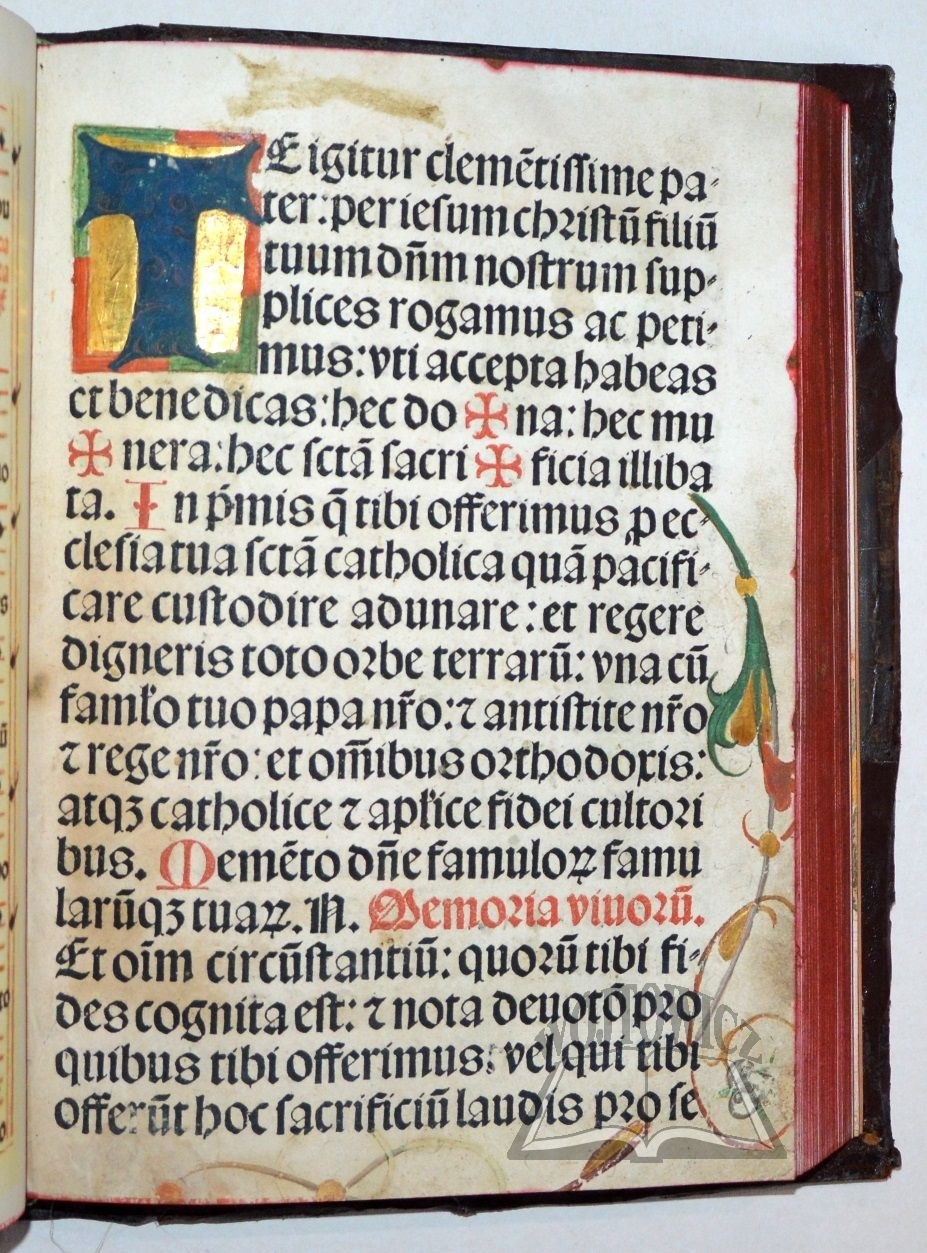 TE igitur clemētissime pa-
ter: per iesum christū filiū
tuum dñm nostrum sup-
plices rogamus ac peti-
mus: vti accepta habeas
et benedicas: hec do ✠ na: hec mu
✠ nera: hec sctā sacri ✠ ficia illiba
ta. In pͥmis q̄ tibi offerimus ꝓ ec-
clesia tua sctā catholica quā pacifi-
care custodire adunare: et regere
digneris toto orbe terrarū: vna cū
famło tuo papa nr̄o: ⁊ antistite nr̄o
⁊ rege nr̄o: et om̄ibus orthodoxis:
atqꝫ catholice ⁊ apłice fidei cultori
bus. Memēto dñe famuloꝝ famu
larūqꝫ tuaꝝ. N. Memoria viuorū.
Et oīm circūstantiū: quorū tibi fi-
des cognita est: ⁊ nota deuotō pro
quibus tibi offerimus: vel qui tibi
offerūt hoc sacrificiū laudis pro se
WÓJTOWICZ